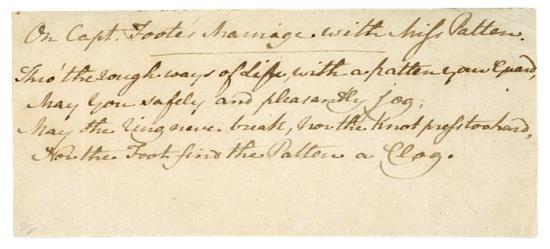 On Capt. Foote's Marriage with Miss Patten.
Thro' the rough ways of Life, with a patten your Guard,
May you safely and pleasantly jog;
May the Ring never break, nor the Knot press too hard,
Nor the Foot find the Patten a Clog.